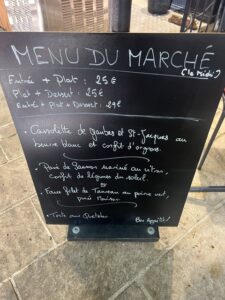 MENU DU MARCHÉ
(le midi)
Entrée + Plat : 25€
Plat + Dessert : 25€
Entrée + Plat + Dessert : 29€
• Cassolette de gambas et St-Jacques au
beurre blanc et confit d'orgnons.
• Pavé de Saumon mariné au citron,
confit de légumes du soleil.
or
• Faux filet de Taureau au poivre vert,
purée Maison.
• Tarte aux
Bon Appétit !